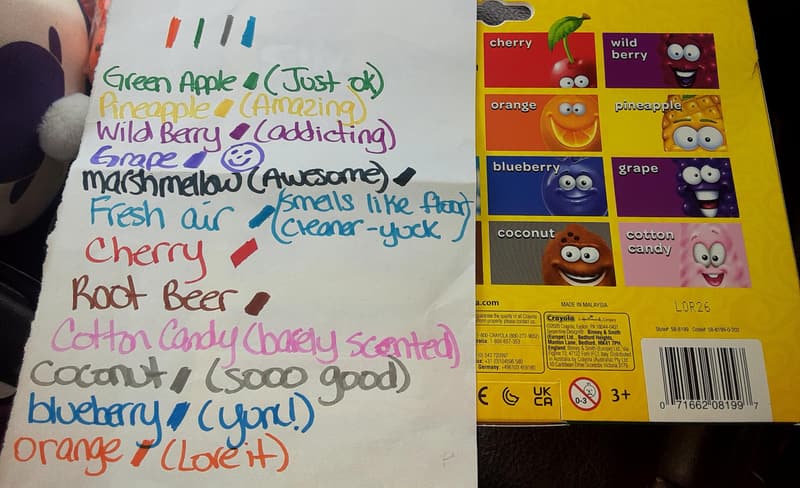 Green Apple (Just ok)
Pineapple (Amazing)
Wild Berry (addicting)
Grape
marshmellow (Awesome)
Fresh air (smells like floor
cleaner-yuck)
Cherry
Root Beer
Cotton Candy (barely scented)
Coconut (sooo good)
blueberry (yum!)
orange (Love it)
cherry
wild
berry
orange
pineapple
blueberry
grape
coconut
cotton
candy
a.com
MADE IN MALAYSIA
LOR26
Crayola
UK
CA
0-3
3+
0 71662 08199 7